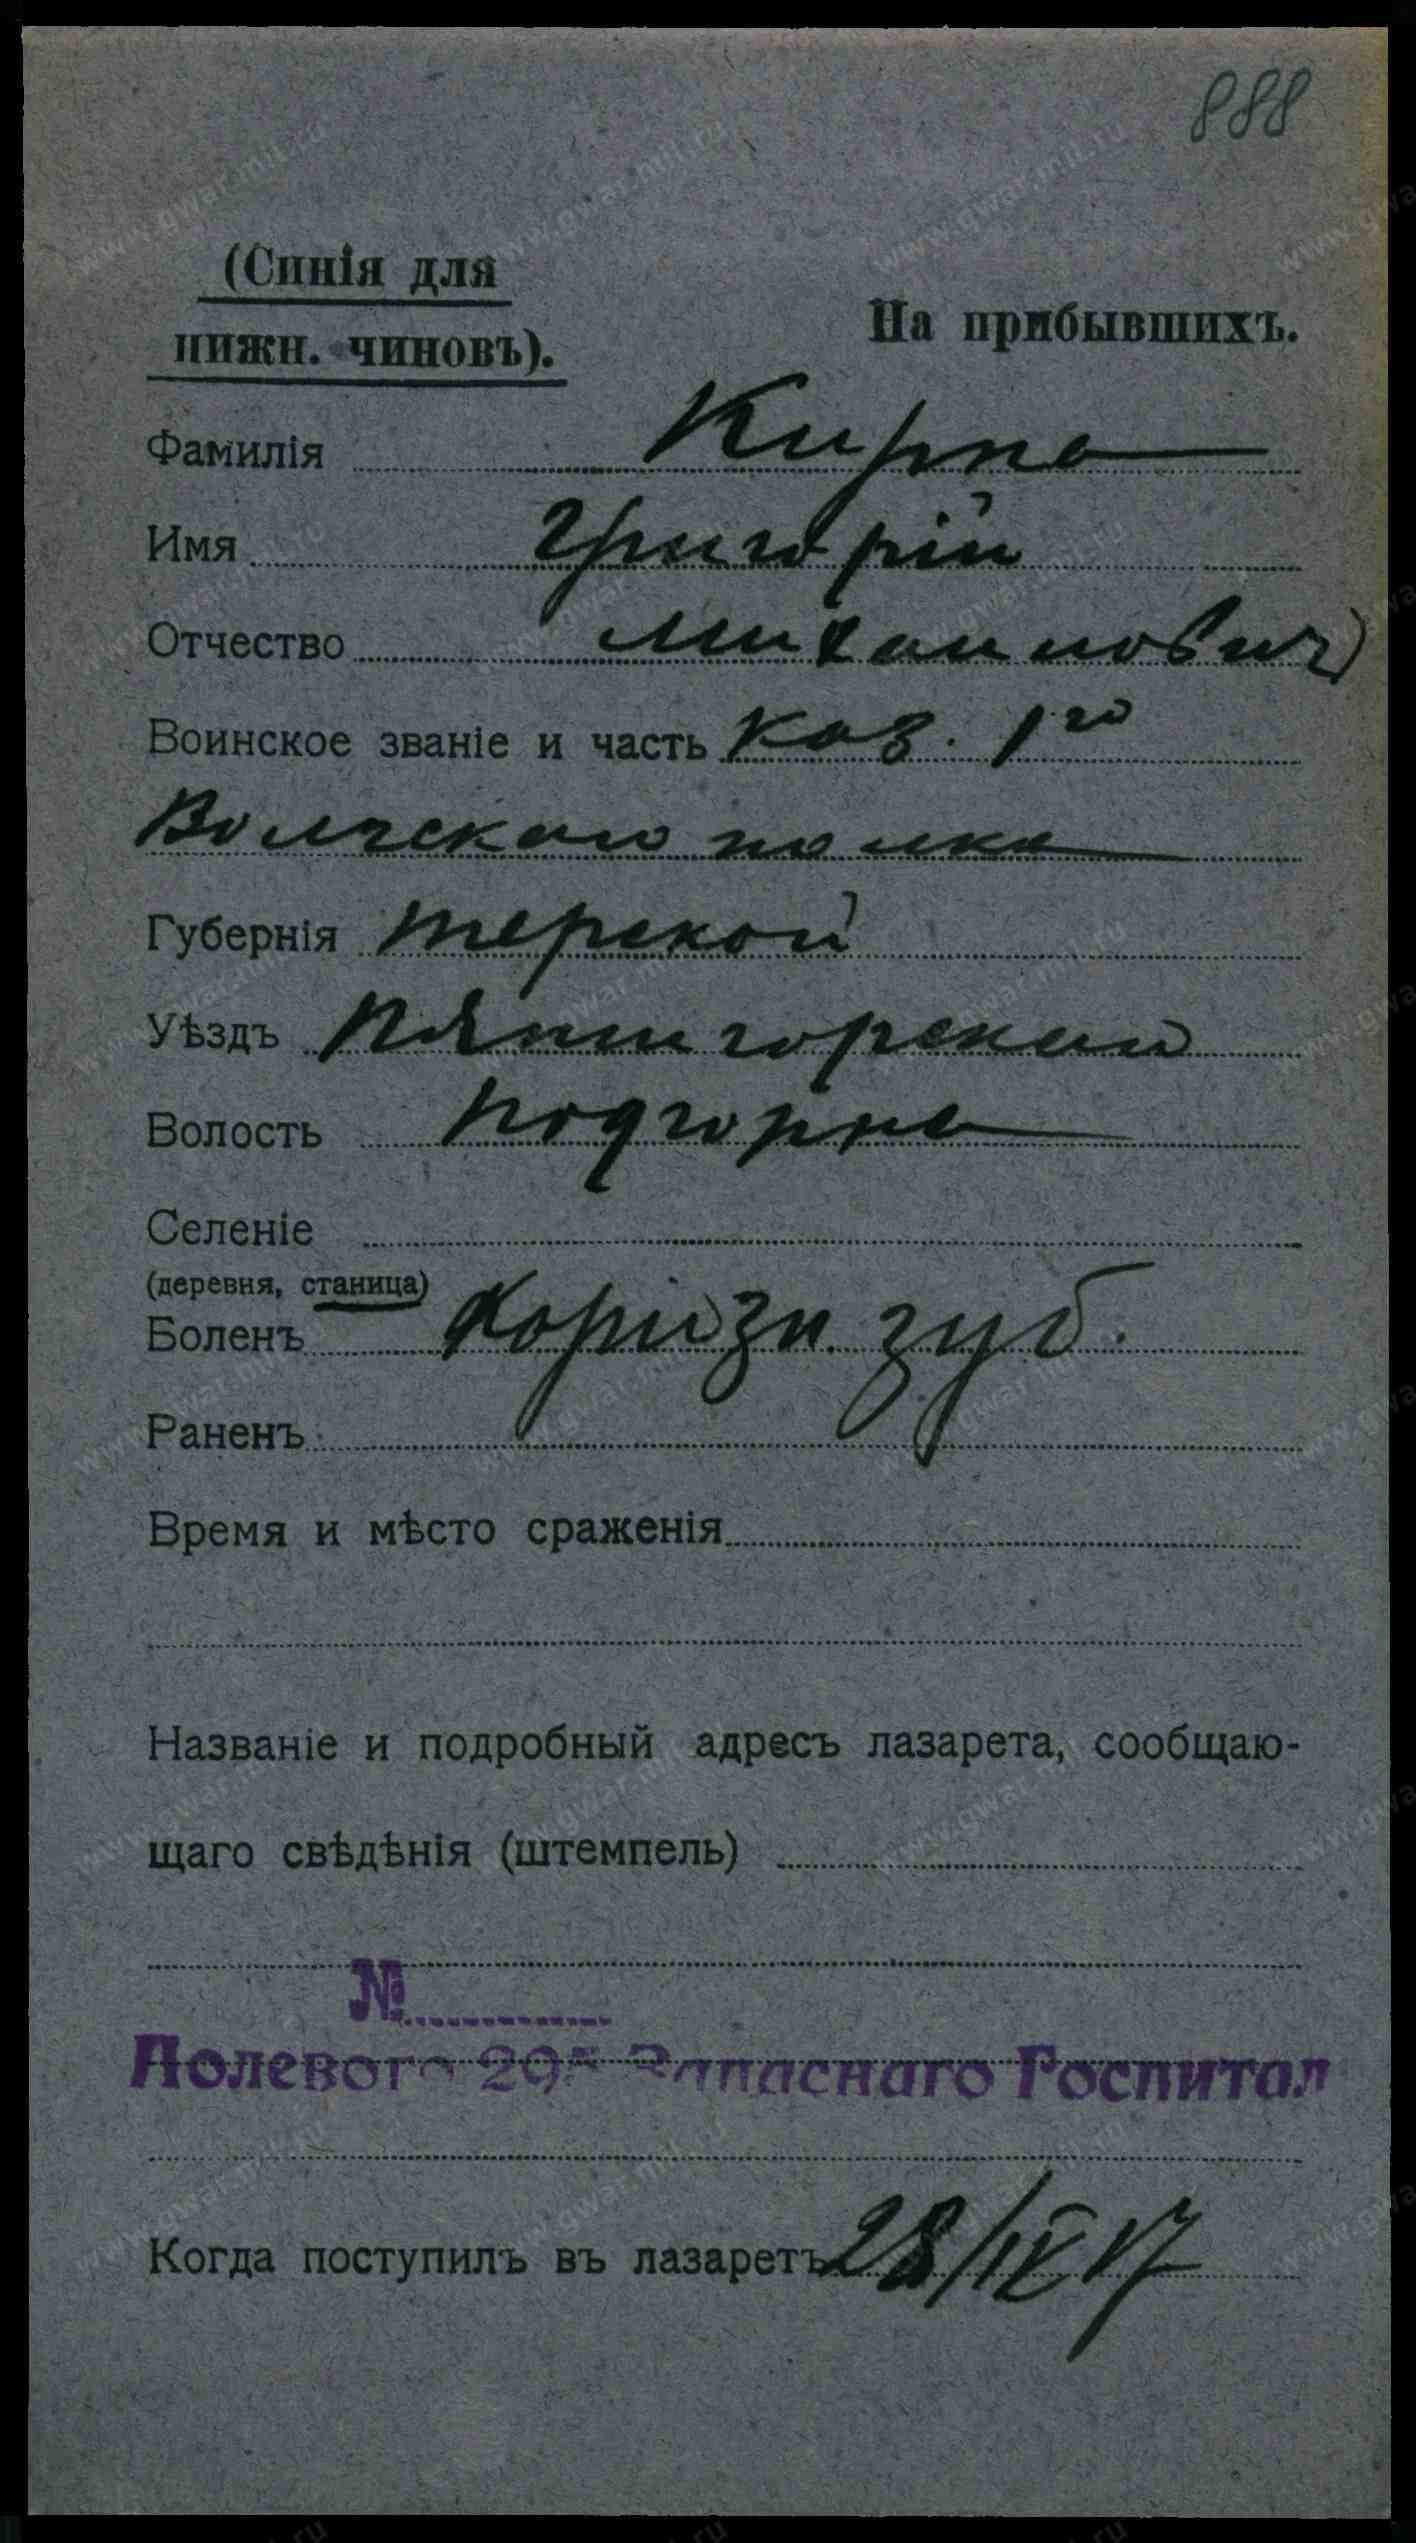 888
(Синія для
нижн. чиновъ).
На прибывшихъ.
Фамилія Кирпа
Имя Григорій
Отчество Михаилович
Воинское званіе и часть Каз. 1го
Волгскаго полка
Губернія Терской
Уѣздъ Пятигорскай
Волость Подгорна
Селеніе
(деревня, станица)
Боленъ зуб.
Раненъ
Время и мѣсто сраженія
Названіе и подробный адресъ лазарета, сообщаю-
щаго свѣдѣнія (штемпель)
№
Полевого 295 Запаснаго Госпитал
Когда поступилъ въ лазаретъ 28/IV 17